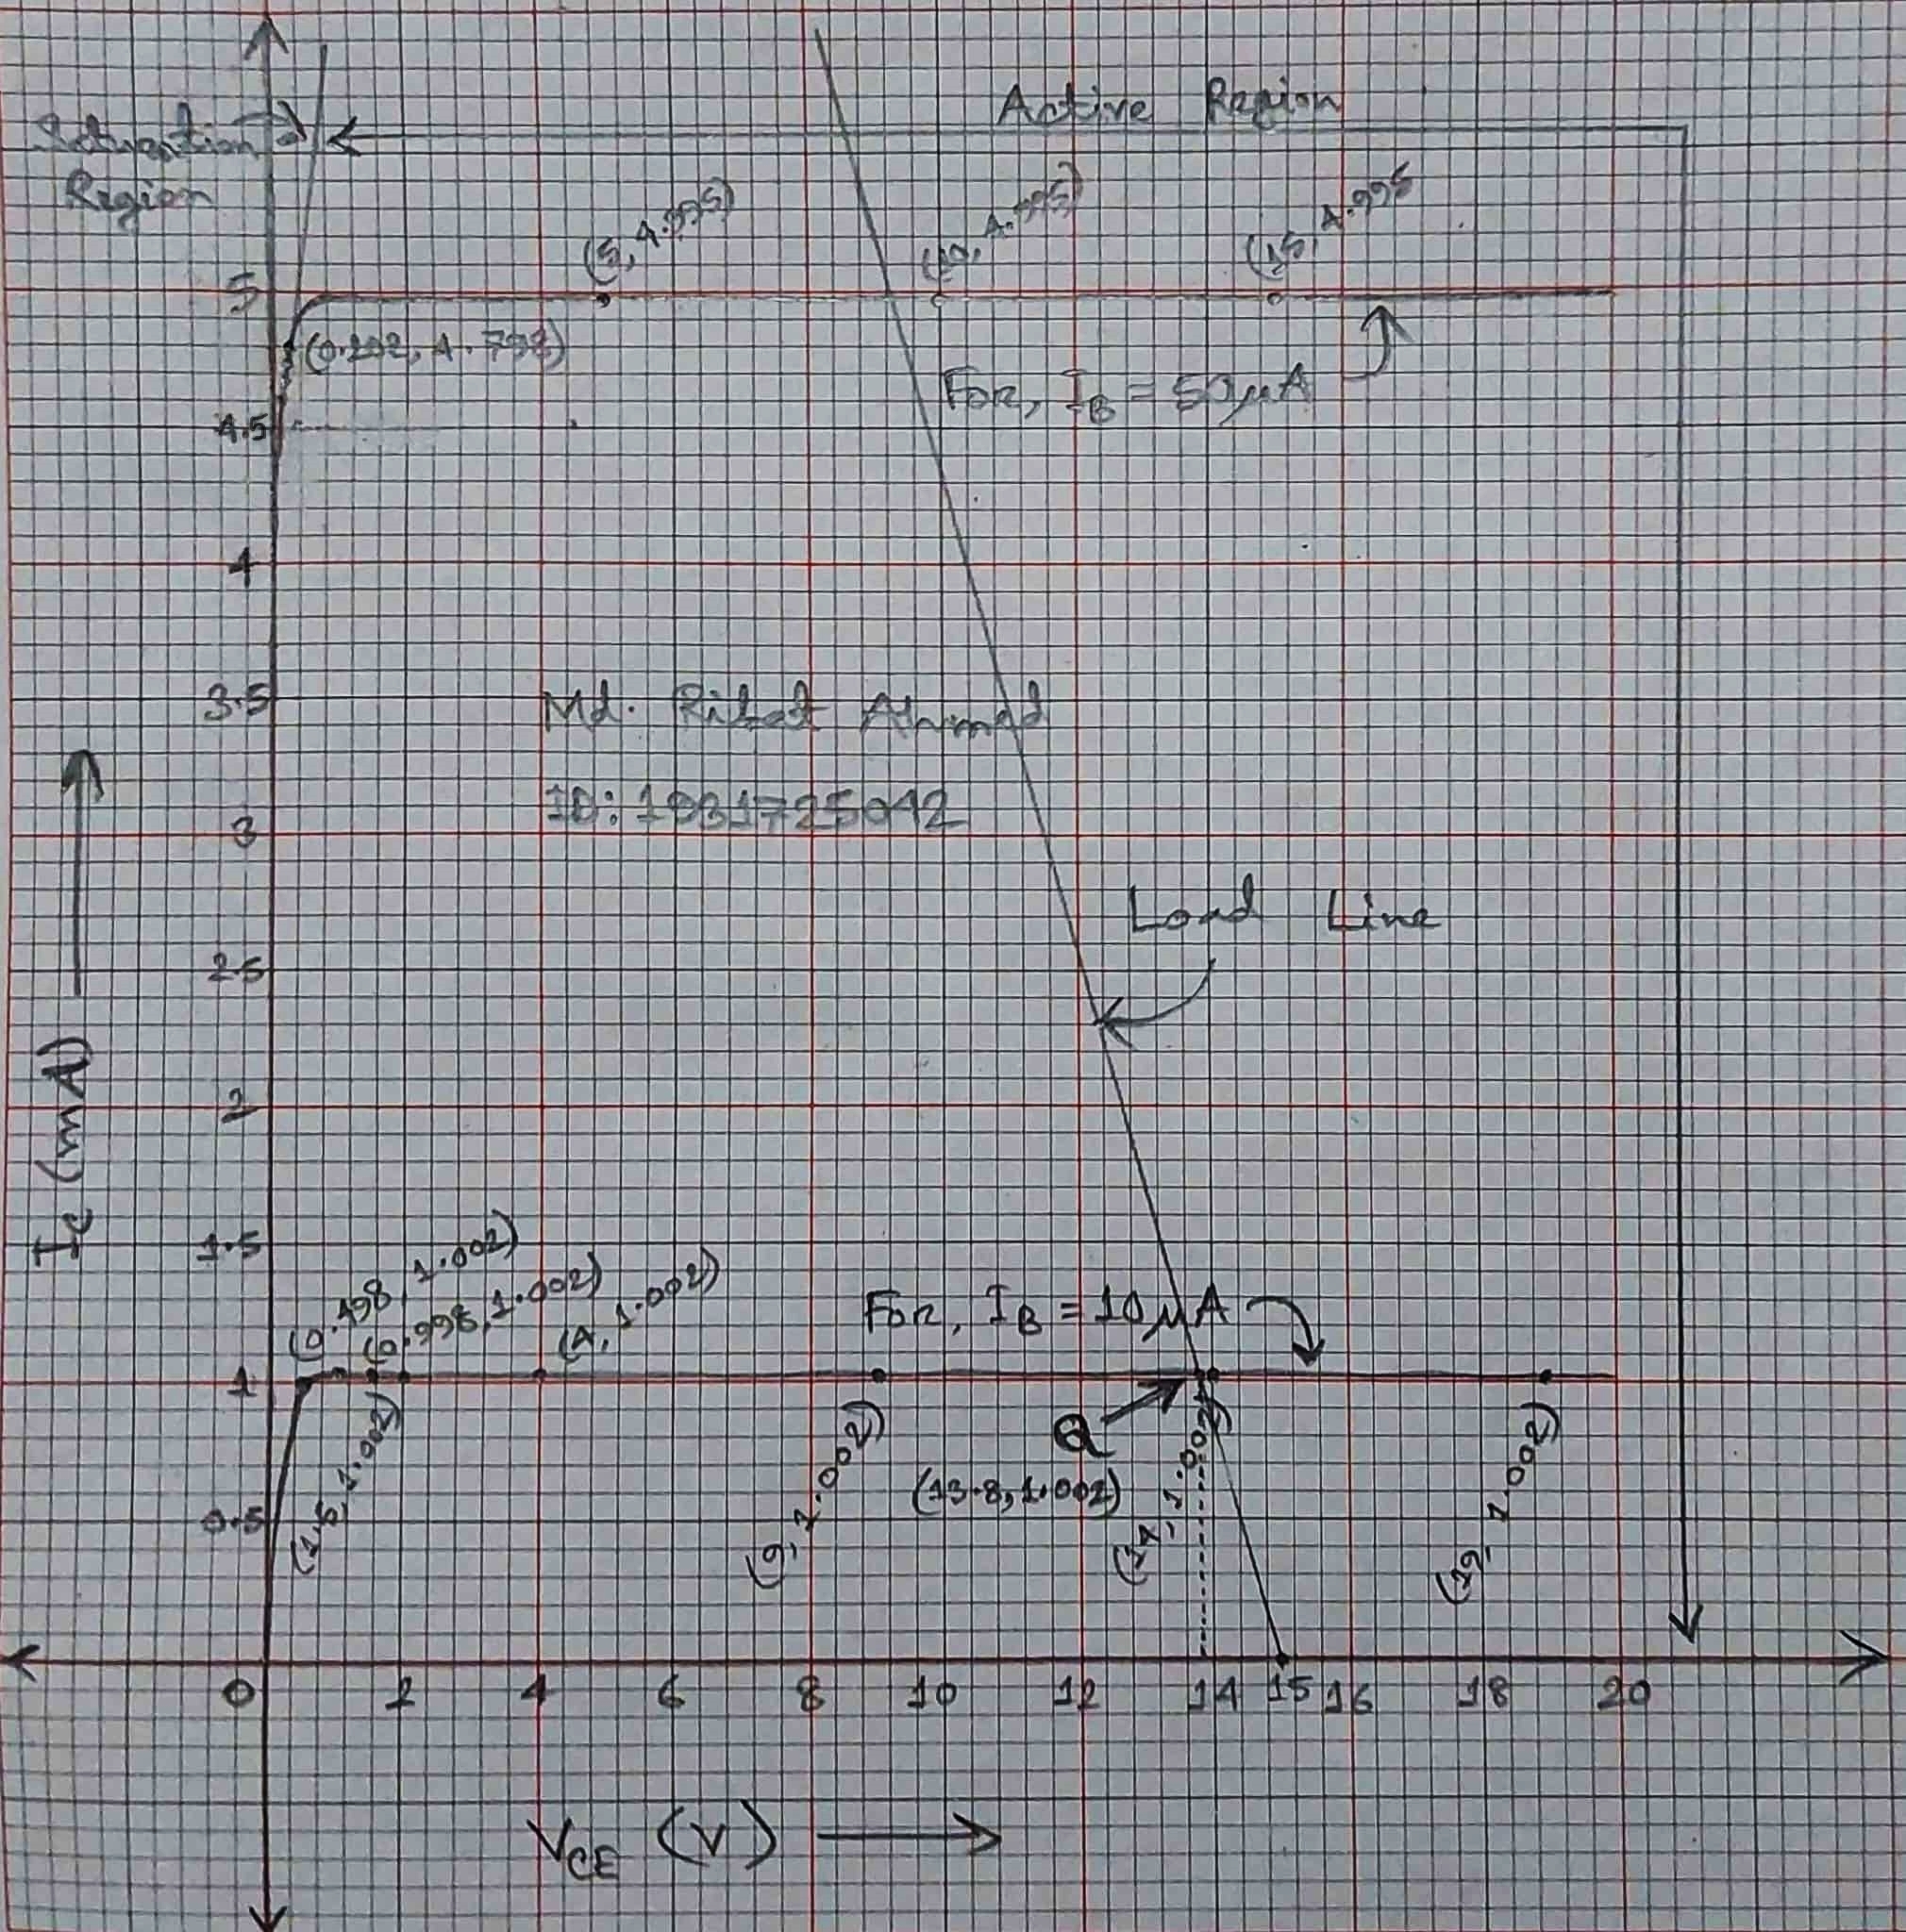 Active Region
Saturation
Region
(5, 4.995)
(10, 4.995)
(15, 4.995
5
(0.202, 4.798)
For, IB = 50μA
4.5
4
3.5
Md. Rifat Ahmed
ID: 1931725042
3
Load Line
2.5
Ic (mA)
2
1.5
(0.498, 1.002)
(0.998, 1.002)
(4, 1.002)
For, IB = 10μA
1
Q
(13.8, 1.002)
(1.5, 1.002)
(9, 1.002)
(14, 1.002)
(19, 1.002)
0.5
0 2 4 6 8 10 12 14 15 16 18 20
VCE (V)